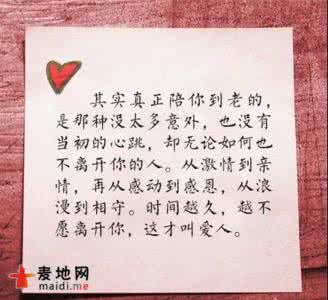 其实真正陪你到老的，
是那种没太多意外，也没有
当初的心跳，却无论如何也
不离开你的人。从激情到亲
情，再从感动到感恩，从浪
漫到相守。时间越久，越不
愿离开你，这才叫爱人。
麦地网
maidi.me